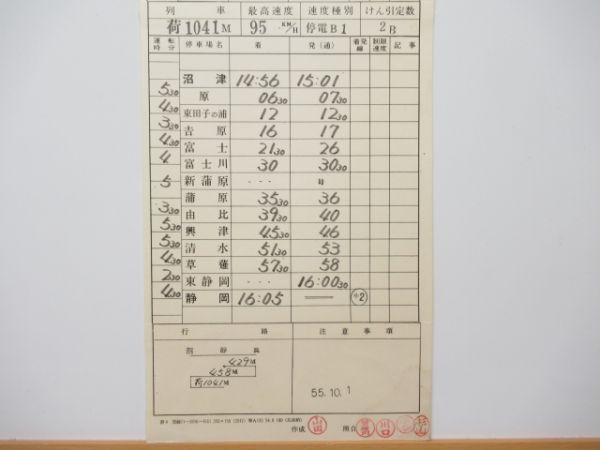 列 車 最高速度 速度種別 けん引定数
荷1041M 95 KM/H 停電B1 2B
運転時分 停車場名 着 発(通) 着発線 制限速度 記事
沼津 14:56 15:01
5 30
原 06 30 07 30
4 30
東田子の浦 12 12 30
3 30
吉原 16 17
4 30
富士 21 30 26
4
富士川 30 30 30
新蒲原 ...
5
蒲原 35 30 36
3 30
由比 39 30 40
5 30
興津 45 30 46
5 30
清水 51 30 53
4 30
草薙 57 30 58
2 30
東静岡 ... 16:00 30
4 30
静岡 16:05
行 路 注意事項
429M
458M
荷1041M
55.10.1
作成 山田 照合 川口